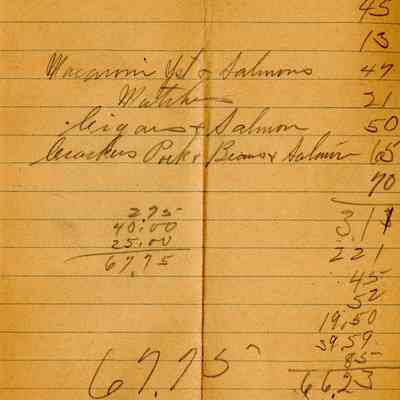 45
13
Macaroni Yst & Salmons 47
Matches 21
Cigars & Salmon 50
Crackers Pork & Beans & Salmon 65
70
2.75
40.00
25.00
67.75
3.11
221
.45
52
19,50
39.59
85
66,23
67.75